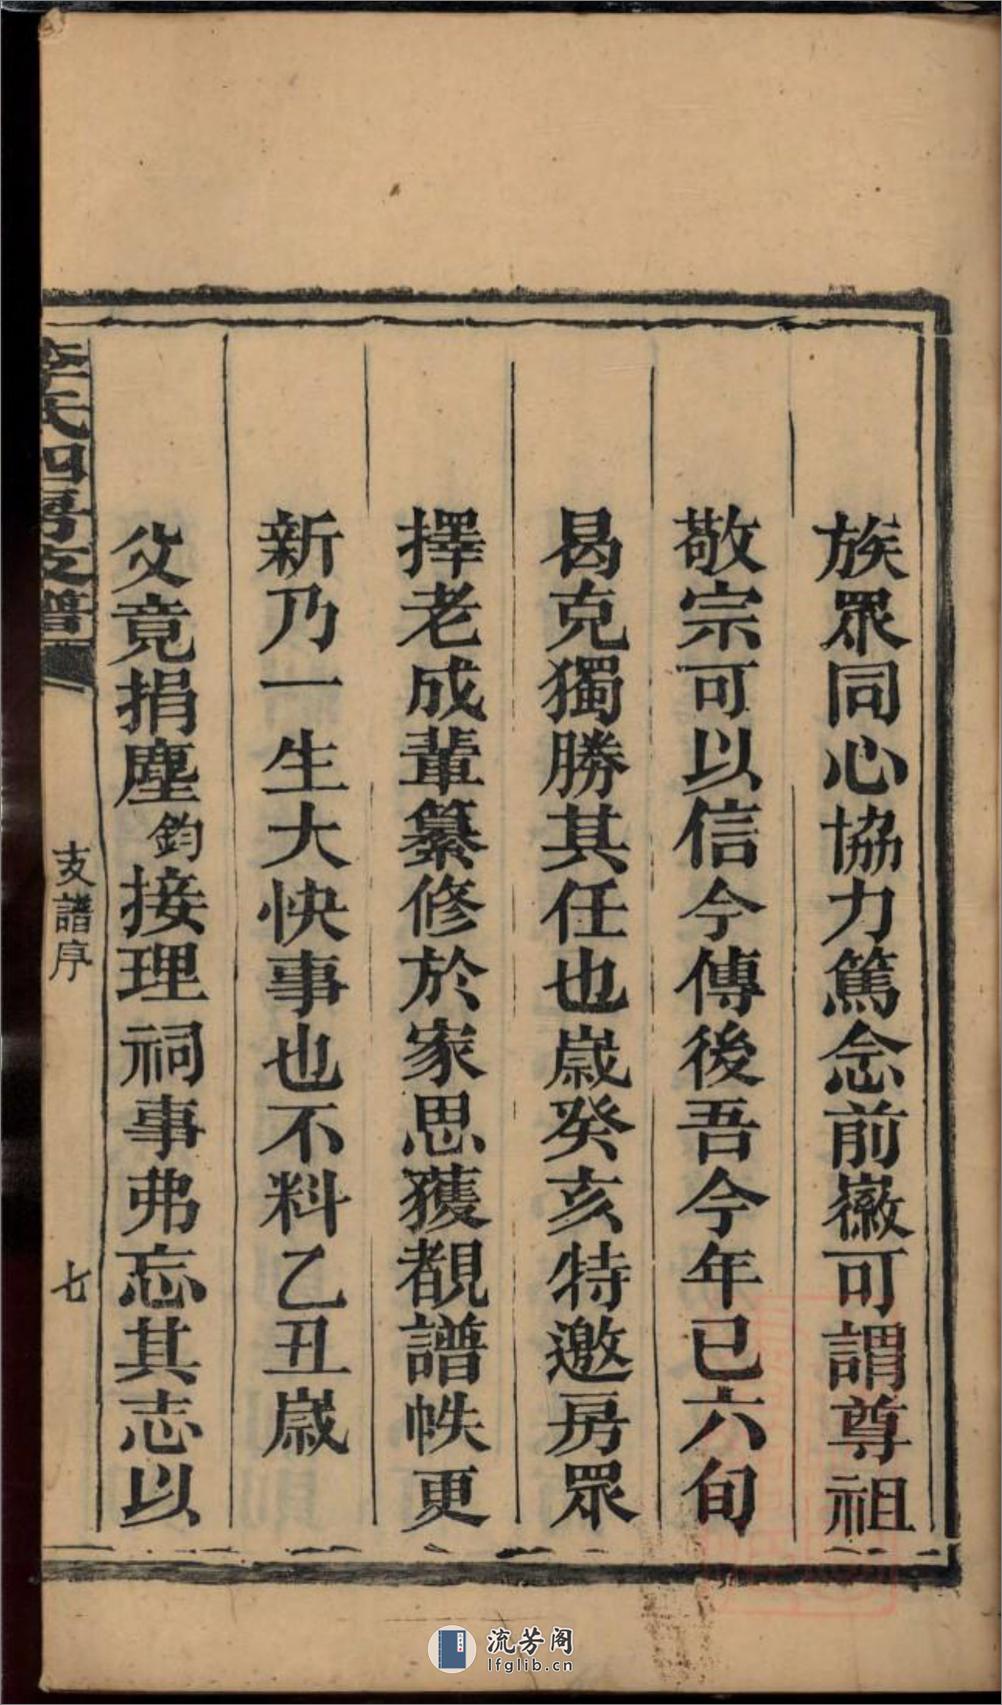 族眾同心協力篤念前徽可謂尊祖
敬宗可以信今傳後吾今年已六旬
曷克獨勝其任也歲癸亥特邀房眾
擇老成輩纂修於家思獲覩譜帙更
新乃一生大快事也不料乙丑歲
父竟捐塵鈞接理祠事弗忘其志以
李氏四房支譜
支譜序
七
流芳阁
lfglib.cn